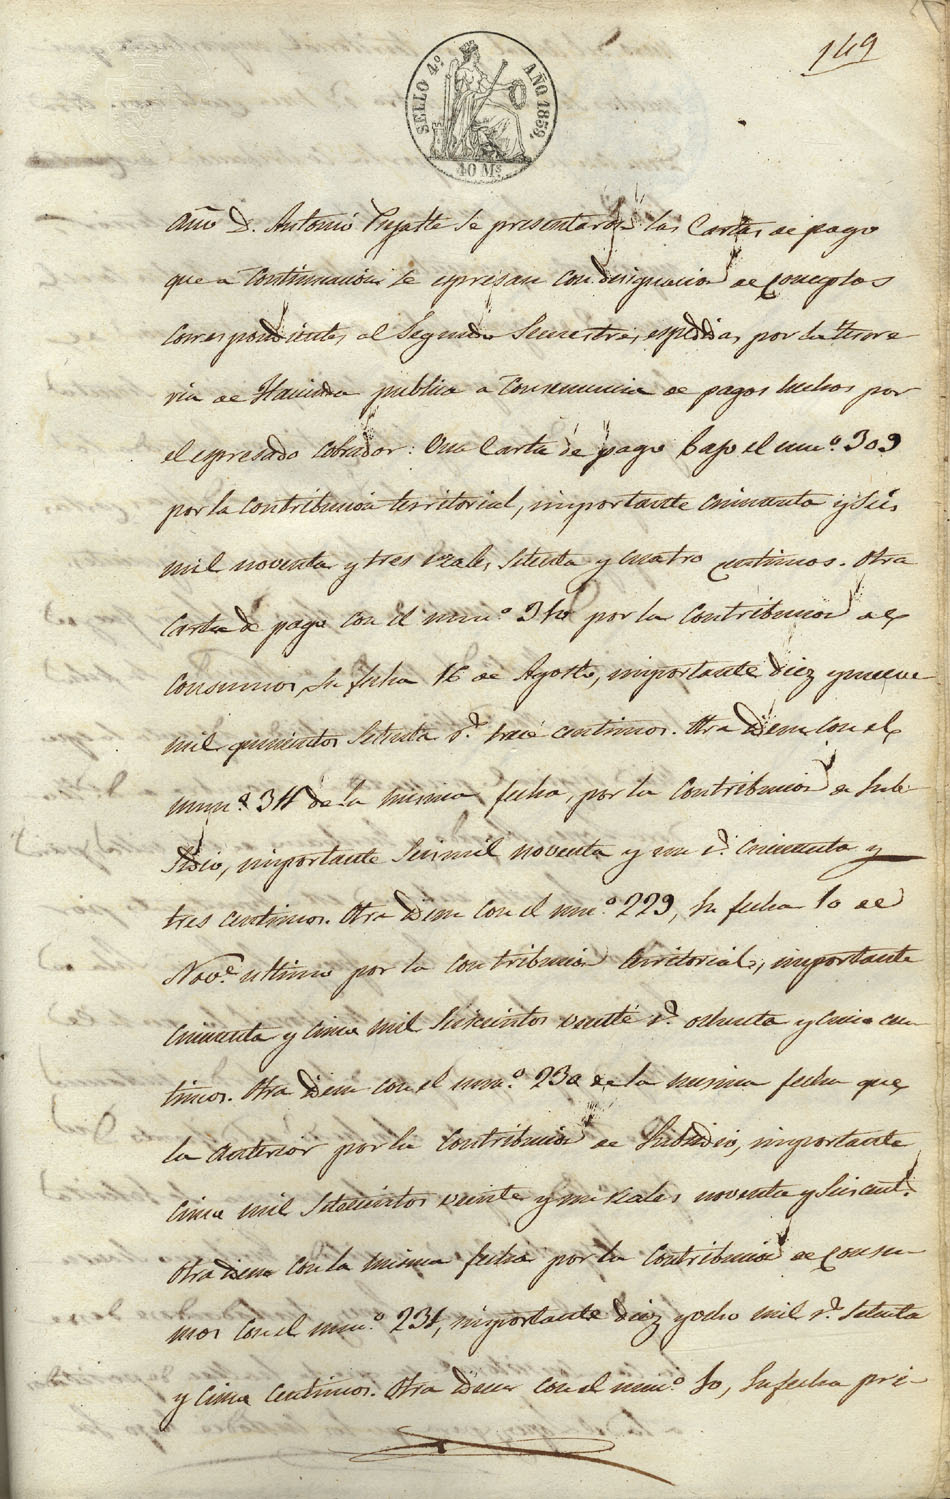 149
SELLO 4º AÑO 1859,
40 Ms
año D. Antonio se presentaron las Cartas de pago
que a continuacion se epresan con designacion de conceptos
correspondientes al Segundo Semestre, espedidas por la Tesore
ria de Hacienda publica a consecuencia de pagos hechos por
el epresado cobrador: Una Carta de pago bajo el numº 309
por la contribucion territorial, importante cincuenta y seis
mil noventa y tres reales, setenta y cuatro centimos. Otra
Carta de pago con el numº 310 por la contribucion de
consumos su fecha 16 de Agosto, importante diez y nueve
mil quinientos setenta rs. trece centimos. Otra idem con el
numº 311 de la misma fecha, por la contribucion de Sub-
sidio, importante seis mil noventa y un rs. cincuenta y
tres centimos. Otra idem con el numº 229, su fecha 10 de
Novº ultimo por la contribucion territorial, importante
cincuenta y cinco mil seiscientos veinte rs. ochenta y cinco cen-
timos. Otra idem con el numº 230 de la misma fecha que
la anterior por la contribucion de Subsidio, importante
cinco mil setecientos veinte y un reales noventa y seis cent.
Otra idem con la misma fecha por la contribucion de consu-
mos con el numº 231, importante diez y ocho mil rs. setenta
y cinco centimos. Otra idem con el numº 50, su fecha pri-